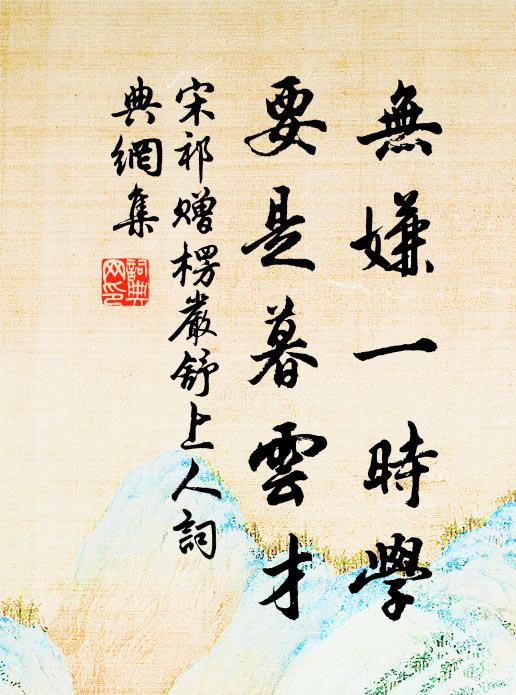 無嫌一時學
要是暮雲才
宋祁贈楞嚴舒上人詞
典網集
詞典
网印